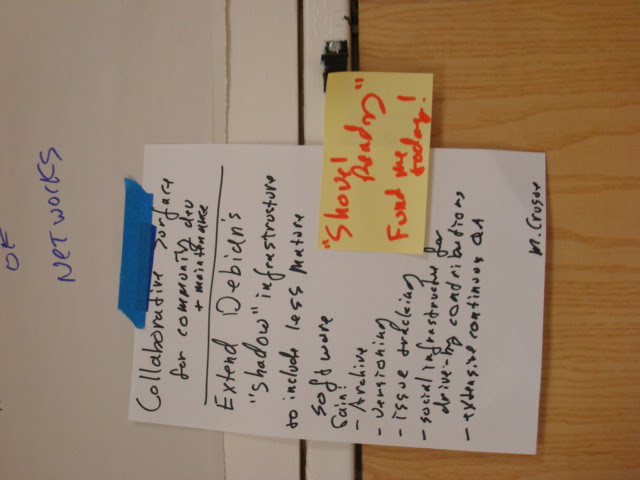 OF
NETWORKS
Collaborative Surface
for community dev
+ maintenance
Extend Debian's
"shadow" infrastructure
to include less mature
software
Gain:
- Archive
- versioning
- issue tracking
- social infrastructure for
drive-by contributions
- extensive continuous QA
M. Crusoe
"Shovel
Ready"
Fund me
today!